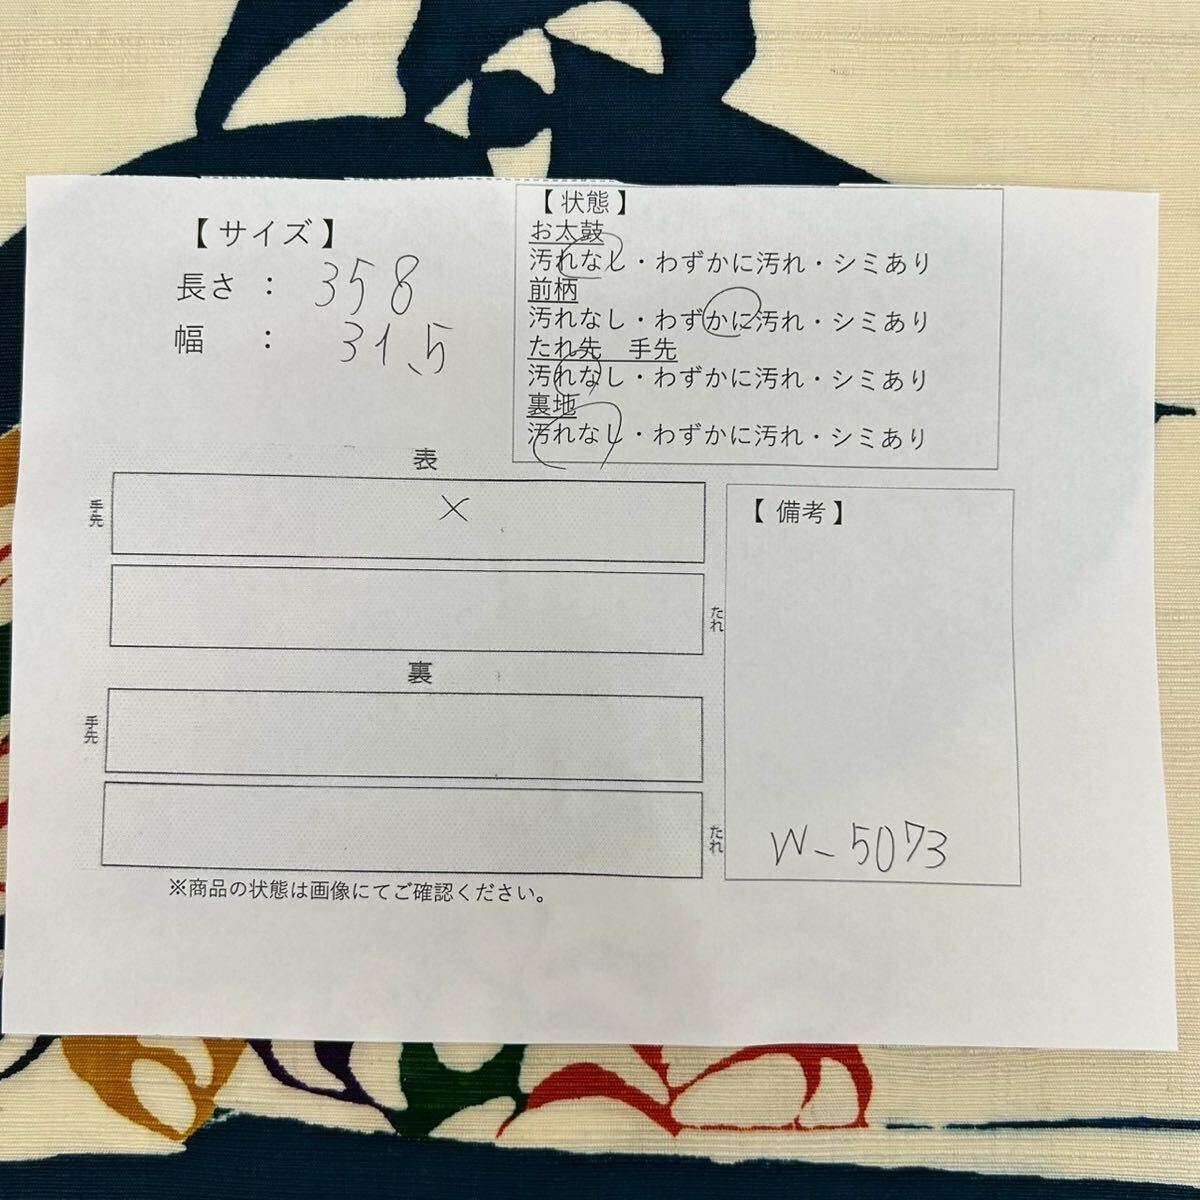 【 サイズ 】
長さ : 358
幅 : 31.5
【 状態 】
お太鼓
汚れなし・わずかに汚れ・シミあり
前柄
汚れなし・わずかに汚れ・シミあり
たれ先 手先
汚れなし・わずかに汚れ・シミあり
裏地
汚れなし・わずかに汚れ・シミあり
表
手先
×
たれ
裏
手先
たれ
※商品の状態は画像にてご確認ください。
【 備考 】
W-5073